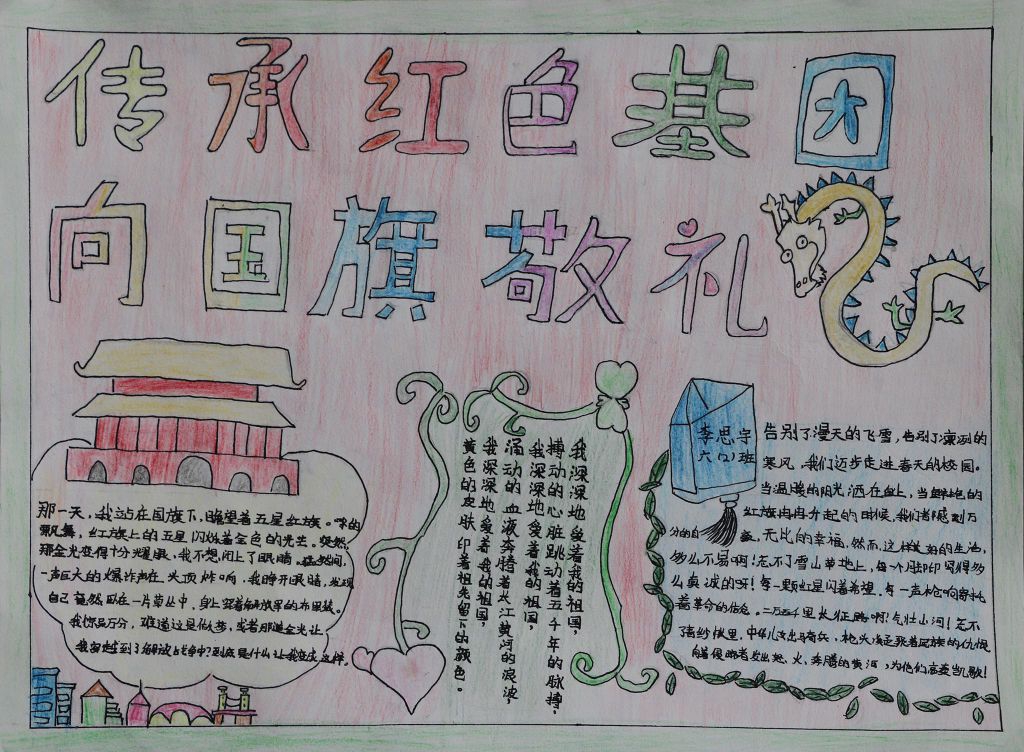 传承红色基团
向国旗敬礼
李思宇
六(2)班
那一天，我站在国旗下，瞻望着五星红旗。
飘舞，红旗上的五星闪烁着金色的光芒。突然，
那金光变得十分耀眼，我不想闭上了眼睛，在然间，
一声巨大的爆炸声在头顶炸响，我睁开眼睛，发现
自己竟然卧在一片草丛中，身上穿着解放军的布军装。
我惊恐万分，难道这是做梦，或者那道金光让
我穿越到了解放战争中？到底是什么让我变成这样。
我深深地爱着我的祖国，
搏动的心脏跳动着五千年的脉搏，
我深深地爱着我的祖国，
涌动的血液奔腾着长江黄河的浪波，
我深深地爱着我的祖国，
黄色的皮肤印着祖先留下的颜色。
告别了漫天的飞雪，告别了凛冽的
寒风，我们迈步走进春天的校园。
当温暖的阳光洒在脸上，当鲜艳的
红旗冉冉升起的时候，我们都感到万
分的自豪，无比的幸福，然而，这样美好的生活，
多么不易啊！忘不了雪山草地上，每一个脚印写得多
么真诚的呀！每一颗红星闪着希望，每一声枪响寄托
着革命的信念。二万五千里长征路啊！气壮山河！忘不
了青纱帐里，中华儿女出奇兵，枪头凝起聚着民族的仇恨
向着侵略者发出怒火，奔腾的黄河，为他们高奏凯歌！